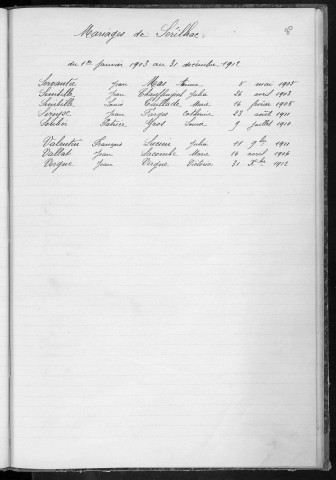 Mariages de Sérilhac
8
du 1er janvier 1903 au 31 décembre 1912
Servantie Jean Mas 8 mai 1905
Simbille Jean Chauffingeal Julie 26 avril 1903
Simbille Louis Taillade Marie 16 février 1908
Jean Farges Catherine 23 août 1911
Soulier Patrice Gros Louise 9 juillet 1910
Valentin François Julia 11 9bre 1911
Vallat Jean Lacombe Marie 16 avril 1906
Vergne Jean Vergne Victorine 31 Xbre 1912